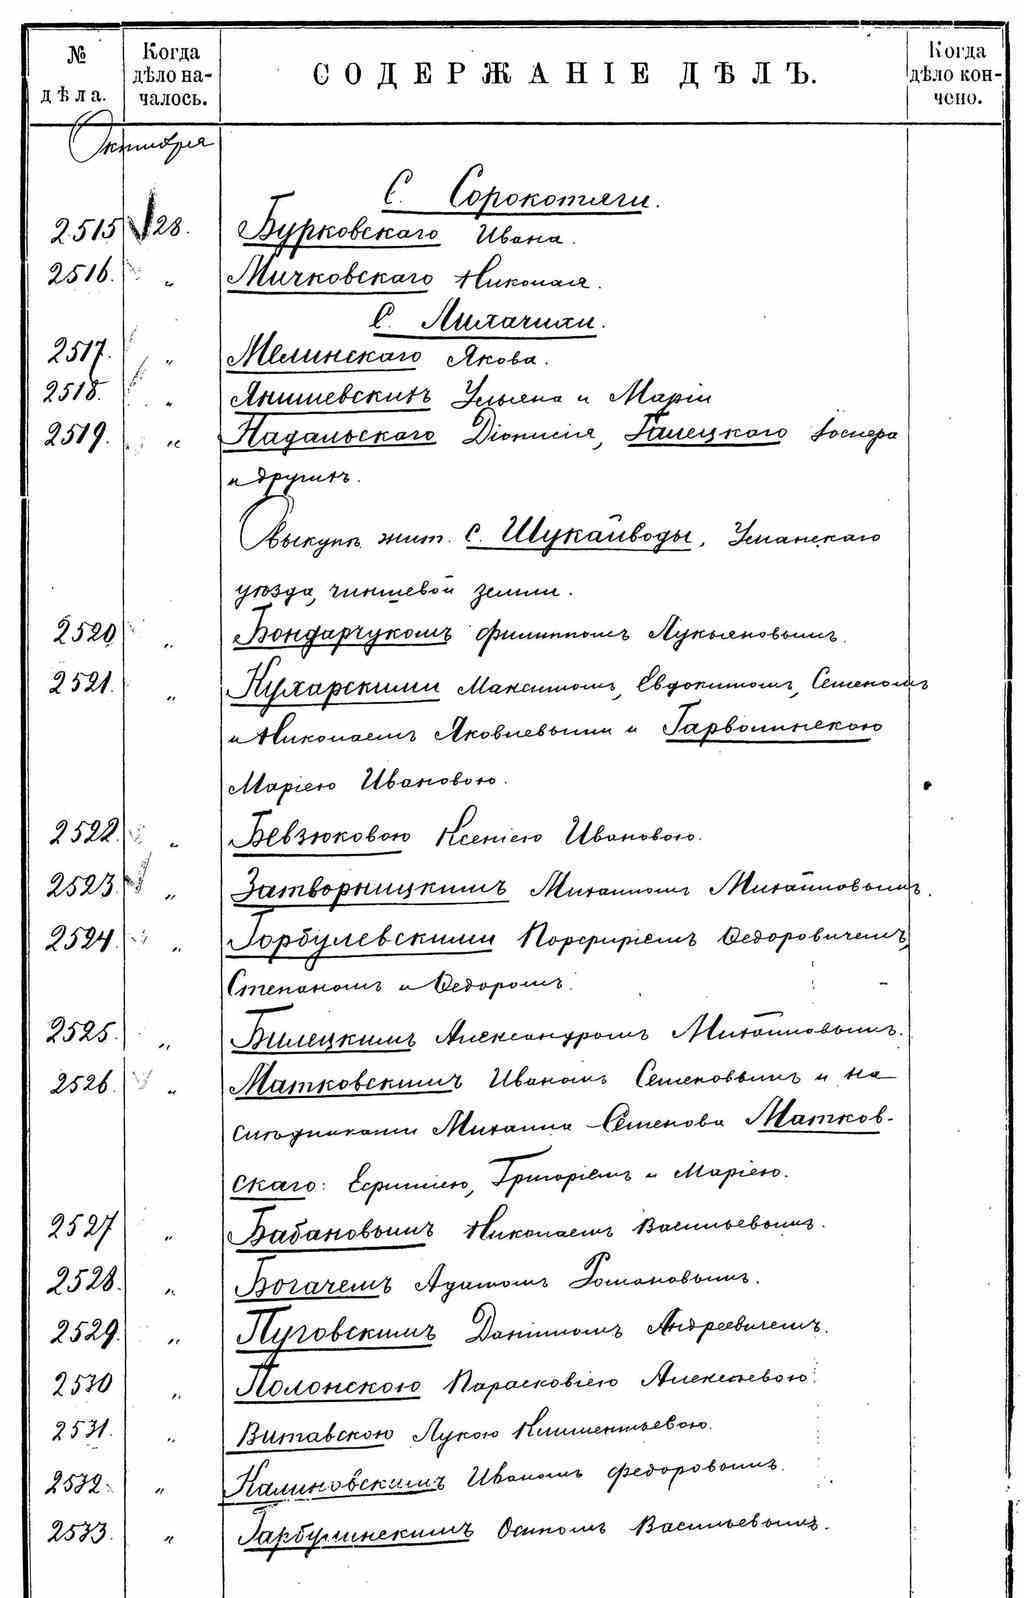 № дѣла. Когда дѣло началось. СОДЕРЖАНІЕ ДѢЛЪ. Когда дѣло кончено.
Октября
С. Сорокотяги.
2515 28. Бурковскаго Ивана.
2516. " Мичковскаго Николая.
С. Лихачихи.
2517. " Мелинскаго Якова.
2518. " Янишевскихъ Ульяна и Маріи
2519. " Надальскаго Діонисія, Галецкаго Іосифа
и другихъ.
О выкупѣ жит. с. Шукайводы, Уманскаго
уѣзда, чиншевой земли.
2520 " Бондарчукомъ Филиппомъ Лукьяновымъ.
2521. " Кухарскими Максимомъ, Евдокимомъ, Семеномъ
и Николаемъ Яковлевыми и Гарволинскою
Маріею Ивановою.
2522. " Бевзюковою Ксеніею Ивановою.
2523. " Затворницкимъ Михаиломъ Михайловымъ.
2524. " Горбулевскими Порфиріемъ Ѳедоровичемъ,
Степаномъ и Ѳедоромъ.
2525. " Билецкимъ Александромъ Михайловымъ.
2526. " Матковскимъ Иваномъ Семеновымъ и на
слѣдниками Михаила Семенова Матков-
скаго: Григоріемъ и Маріею.
2527 " Бабановымъ Николаемъ Васильевымъ.
2528. " Богачемъ Адамомъ Романовымъ.
2529. " Пуговскимъ Даніиломъ Андреевичемъ.
2530 " Полонскою Парасковіею Алексѣевою.
2531. " Витавскою Лукою Климентьевою.
2532. " Калиновскимъ Иваномъ Федоровымъ.
2533. " Гарбулинскимъ Осипомъ Васильевымъ.